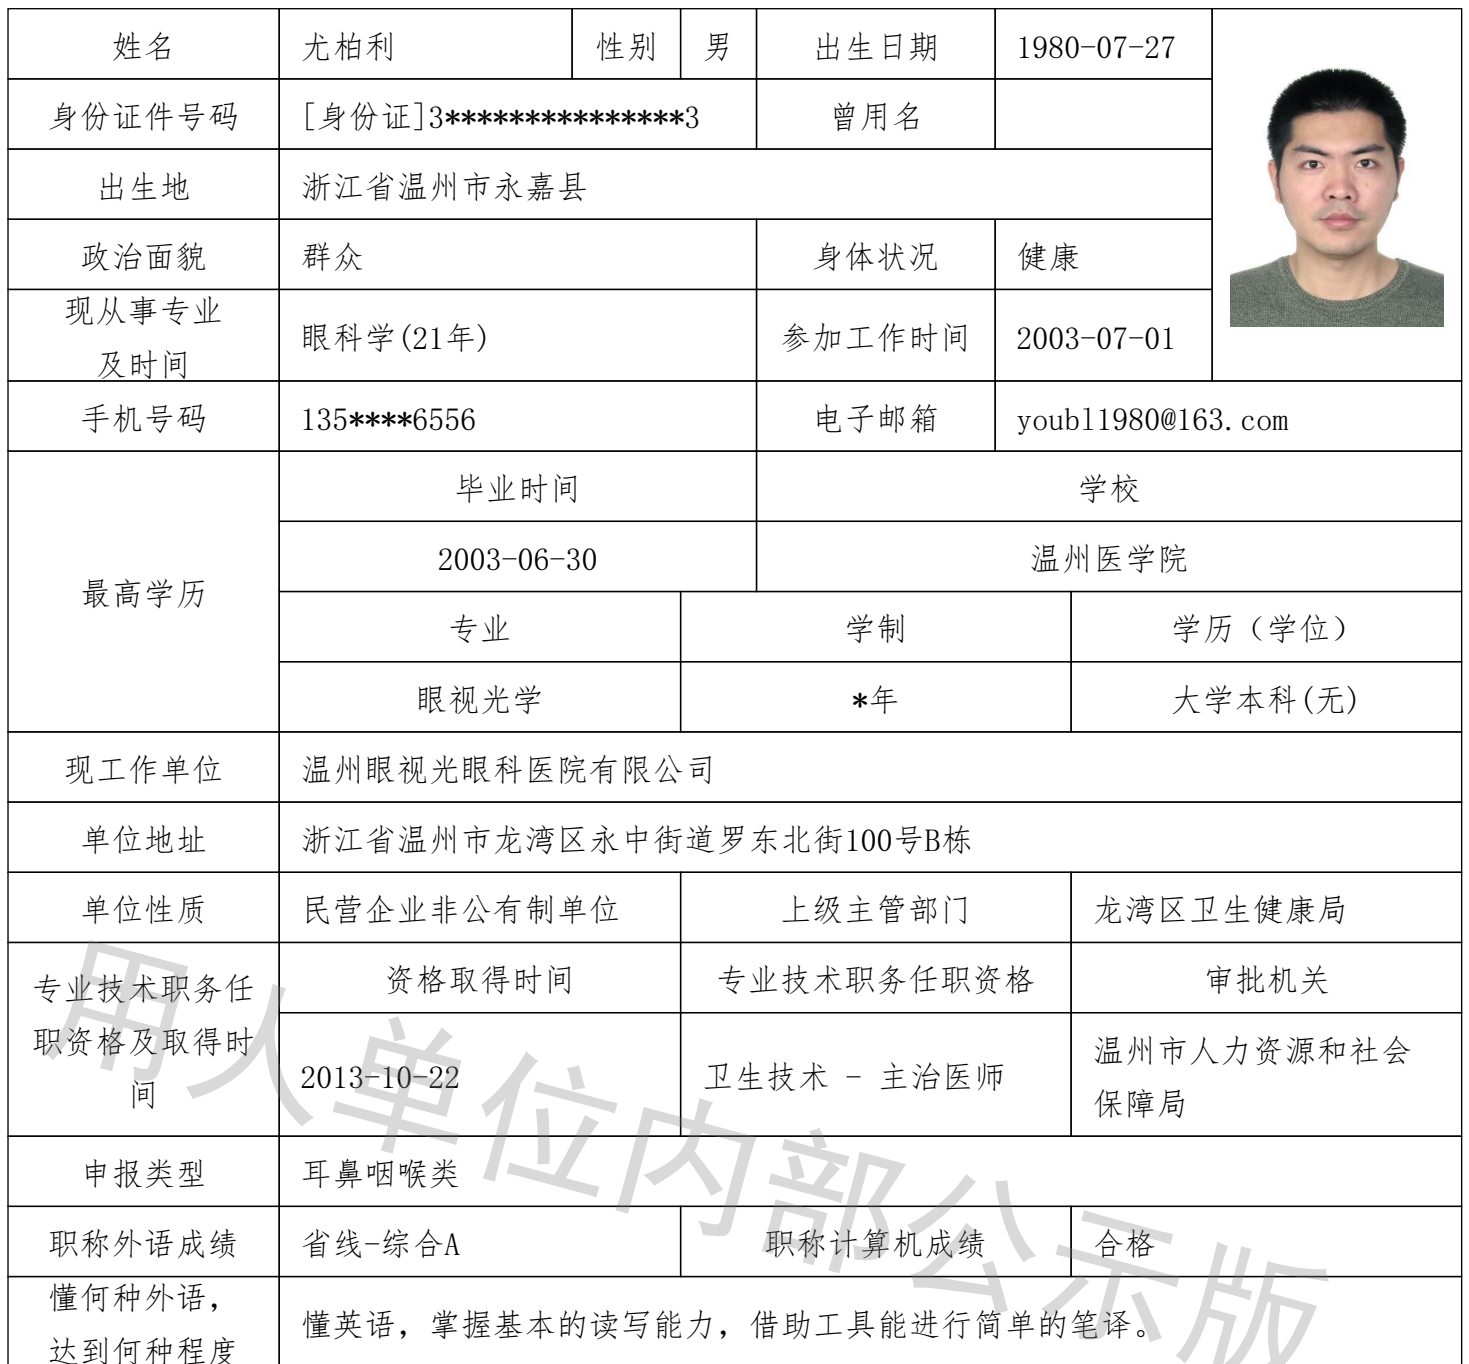 姓名 尤柏利 性别 男 出生日期 1980-07-27
身份证件号码 [身份证]3***************3 曾用名
出生地 浙江省温州市永嘉县
政治面貌 群众 身体状况 健康
现从事专业
及时间
眼科学(21年) 参加工作时间 2003-07-01
手机号码 135****6556 电子邮箱 youbl1980@163.com
最高学历
毕业时间 学校
2003-06-30 温州医学院
专业 学制 学历（学位）
眼视光学 *年 大学本科(无)
现工作单位 温州眼视光眼科医院有限公司
单位地址 浙江省温州市龙湾区永中街道罗东北街100号B栋
单位性质 民营企业非公有制单位 上级主管部门 龙湾区卫生健康局
专业技术职务任
职资格及取得时
间
资格取得时间 专业技术职务任职资格 审批机关
2013-10-22 卫生技术 - 主治医师 温州市人力资源和社会
保障局
申报类型 耳鼻咽喉类
职称外语成绩 省线-综合A 职称计算机成绩 合格
懂何种外语，
达到何种程度
懂英语，掌握基本的读写能力，借助工具能进行简单的笔译。
用人单位内部公示版